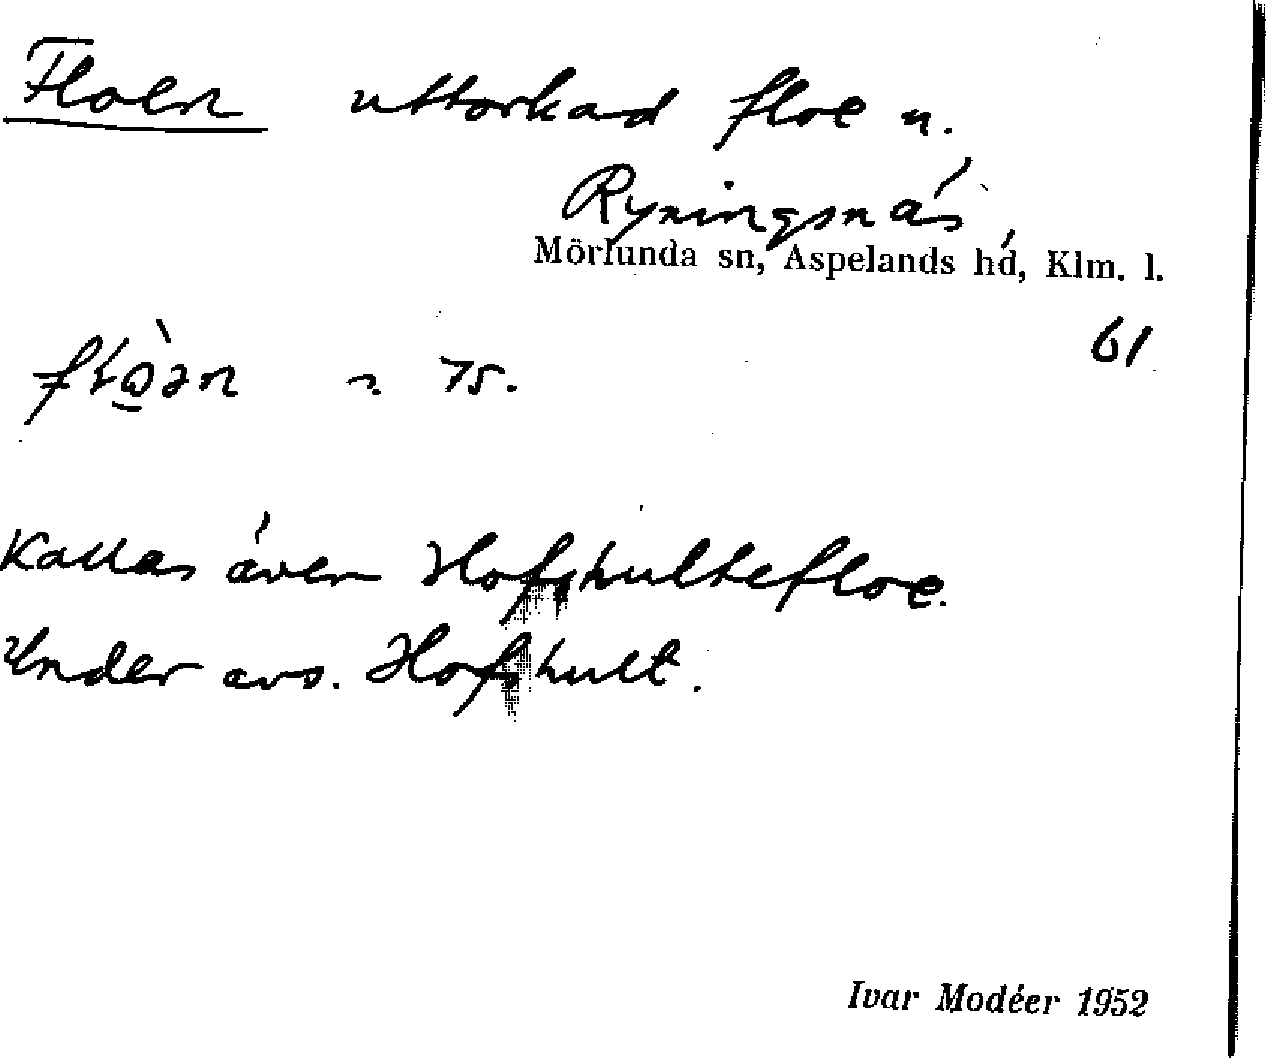 Floen uttorkad floe u.
Ryningsnäs
Mörlunda sn, Aspelands hd, Klm. l.
61
75.
Kallas även Hofshultefloe.
Under avs. Hofshult.
Ivar Modéer 1952